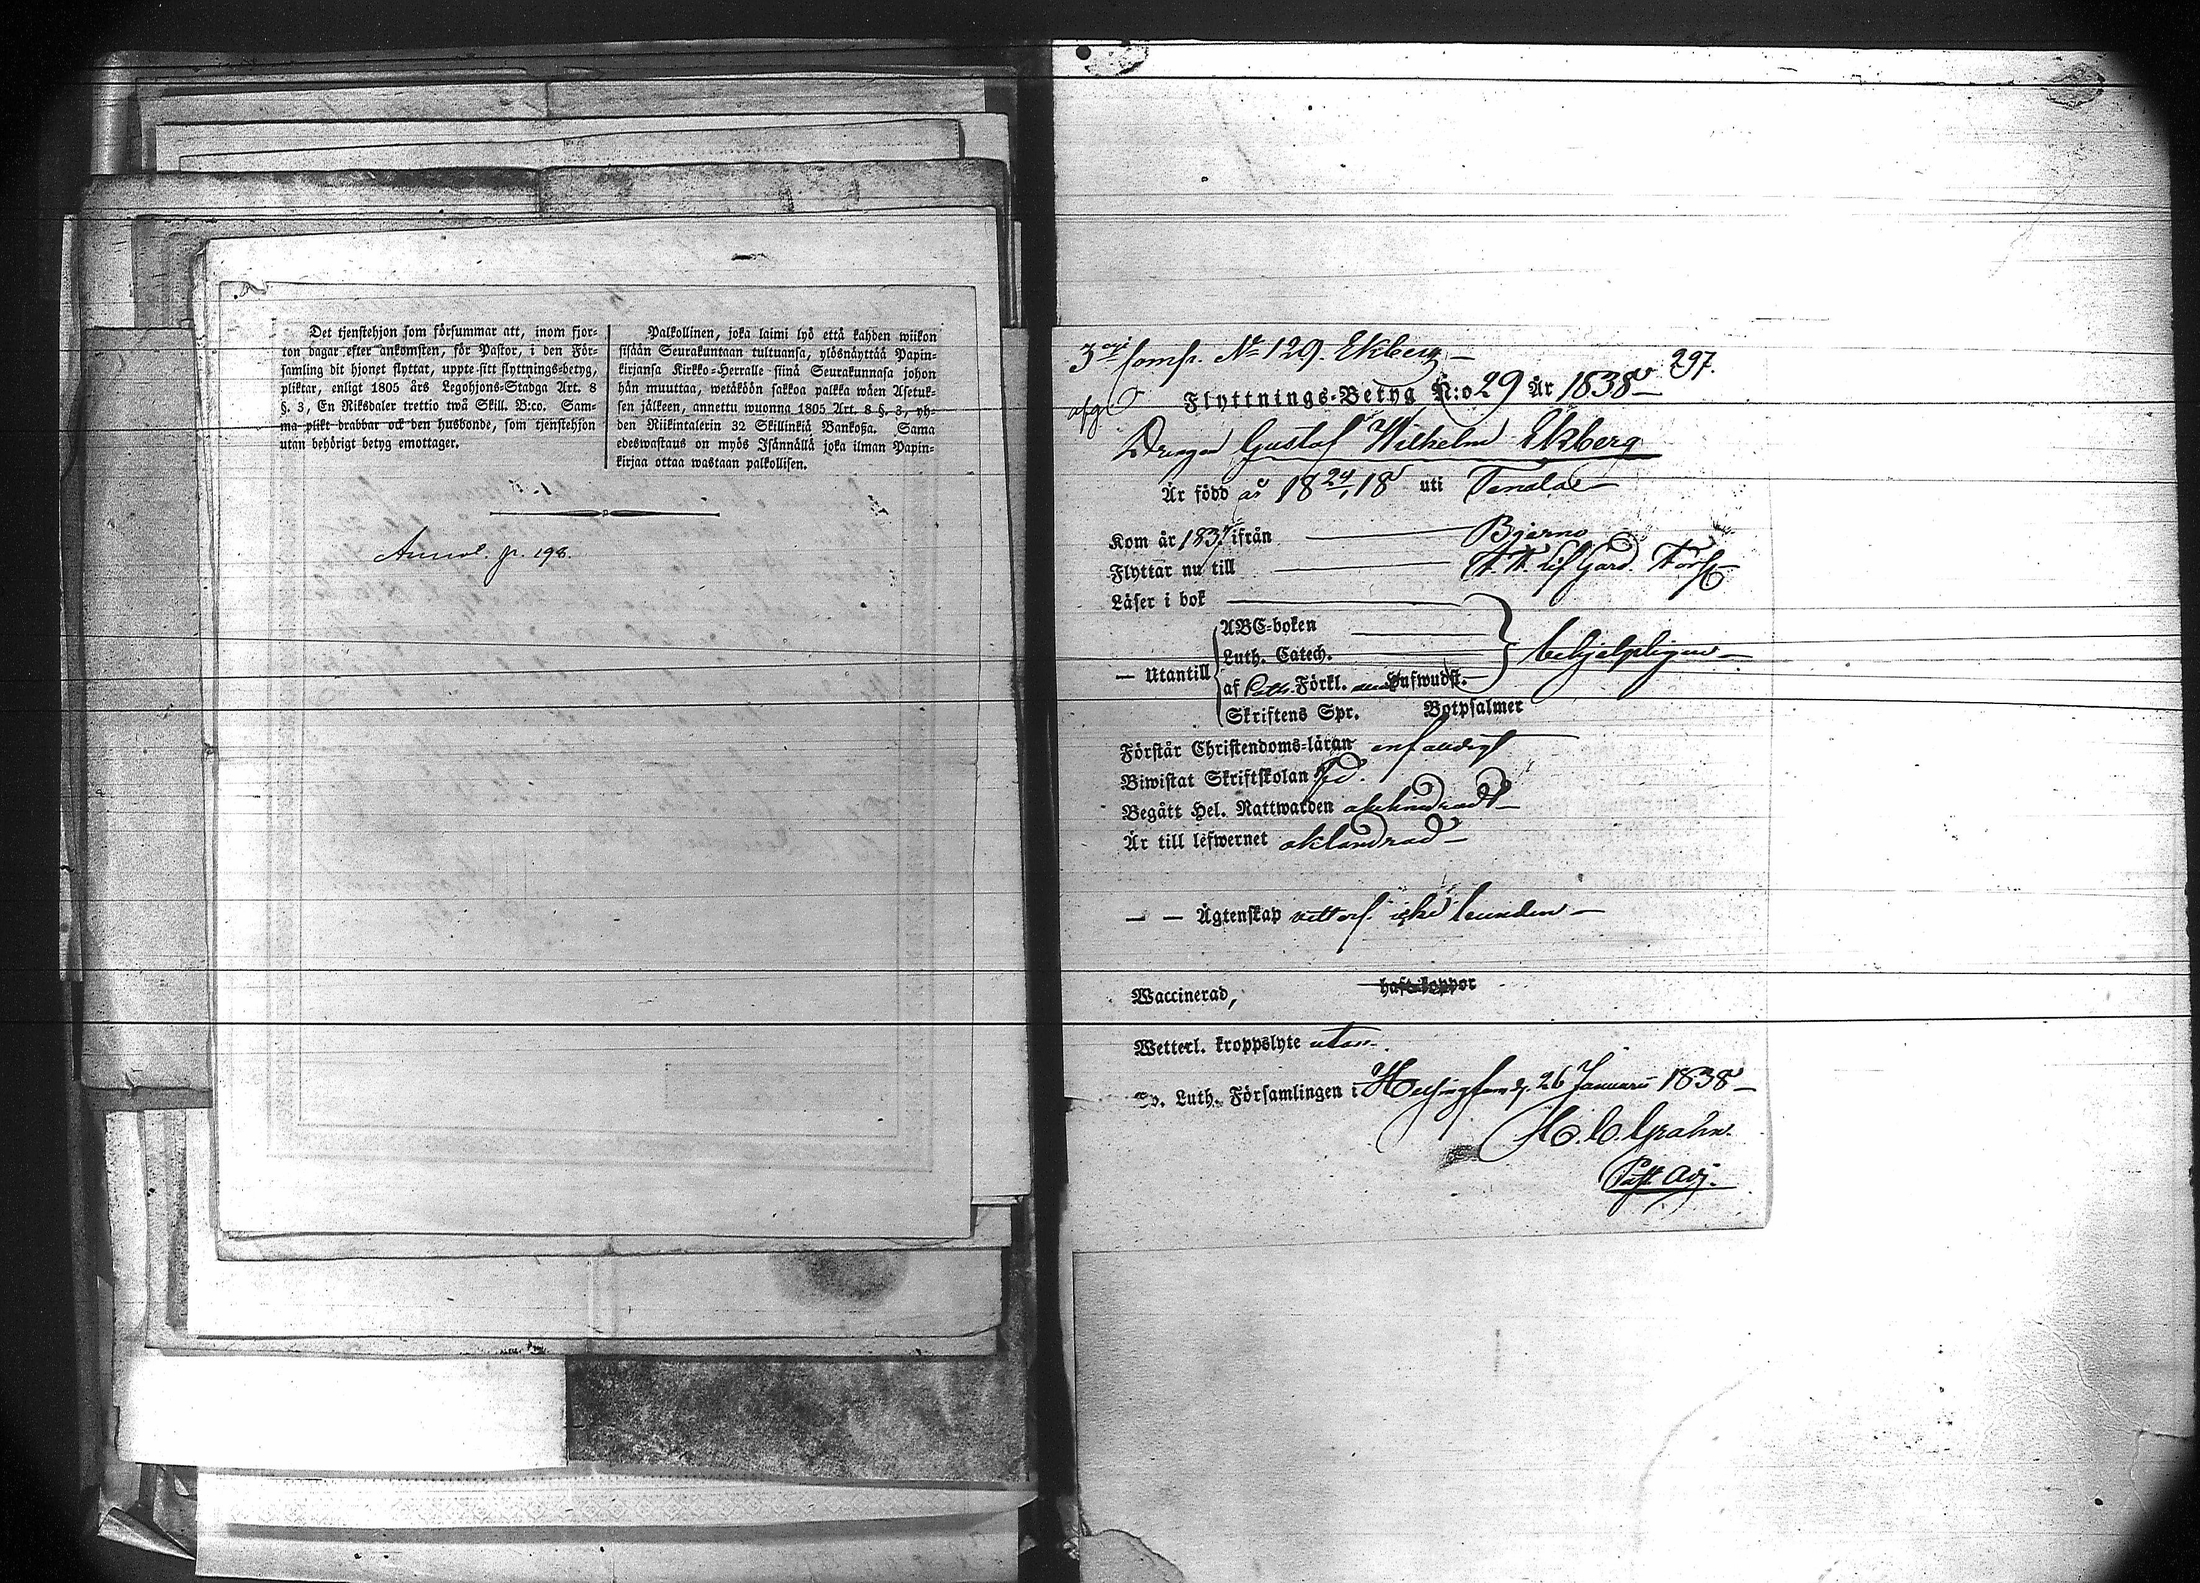 Det tjenstehjon som försummar att, inom fjor-
ton dagar efter ankomsten, för Pastor, i den För-
samling dit hjonet flyttat, uppte sitt flyttnings-betyg,
pliktar, enligt 1805 års Legohjons-Stadga Art. 8
§. 3, En Riksdaler trettio twå Skill. B:co. Sam-
ma plikt drabbar ock den husbonde, som tjenstehjon
utan behörigt betyg emottager.
Palkollinen, joka laimi lyö että kahden wiikon
sisään Seurakuntaan tultuansa, ylösnäyttää Papin-
kirjansa Kirkko-Herralle siinä Seurakunnasa johon
hän muuttaa, wetäköön sakkoa palkka wäen Asetuk-
sen jälkeen, annettu wuonna 1805 Art. 8 §. 3, yh-
den Riikintalerin 32 Skillinkiä Bankoßa. Sama
edeswastaus on myös Isännällä joka ilman Papin-
kirjaa ottaa wastaan palkollisen.
p. 198.
3 Comp. No 129. Ekberg
297.
Flyttnings-Betyg N:o 29 År 1838
Drengen Gustaf Wilhelm Ekberg
Är född år 18 24/1 18 uti Tenala
Kom år 1837 ifrån Bjerno
Flyttar nu till Lif Gard.
Läser i bok
ABC-boken
Luth. Catech.
— Utantill behjelpligen
af Förkl. Hufwudst.
Skriftens Spr. Botpsalmer
Förstår Christendoms-läran enfaldigt
Biwistat Skriftskolan
Begått Hel. Nattwarden oklandradt
Är till lefwernet oklandrad
— — Ägtenskap vetterl. icke bunden
Waccinerad, haft koppor
Wetterl. kroppslyte utan
Ev. Luth. Församlingen i Helsingfors d. 26 Januarii 1838
H. C. Grahn.
Past. Adj.